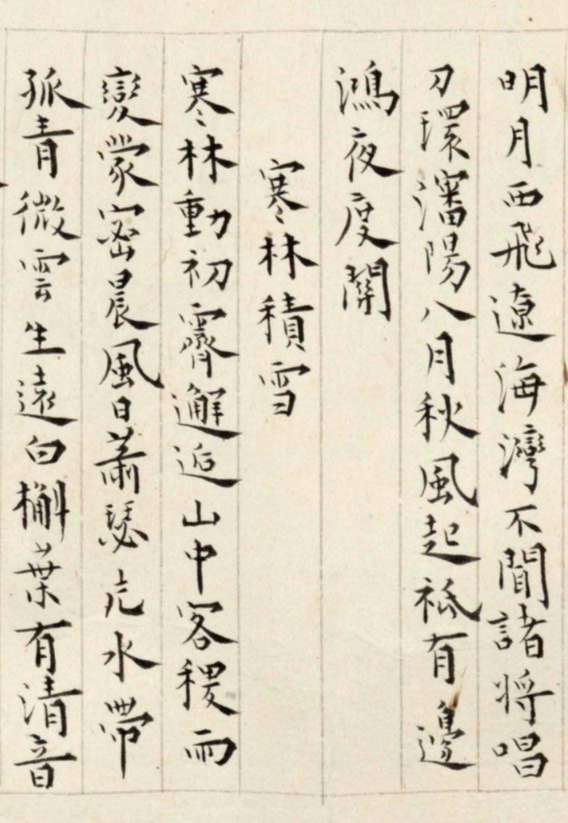 明月西飛遼海灣不聞諸將唱
刀環瀋陽八月秋風起祗有邊
鴻夜度關
寒林積雪
寒林動初霽邂逅山中客稷而
變蒙密晨風日蕭瑟 水帶
孤青微雲生遠白槲葉有清音